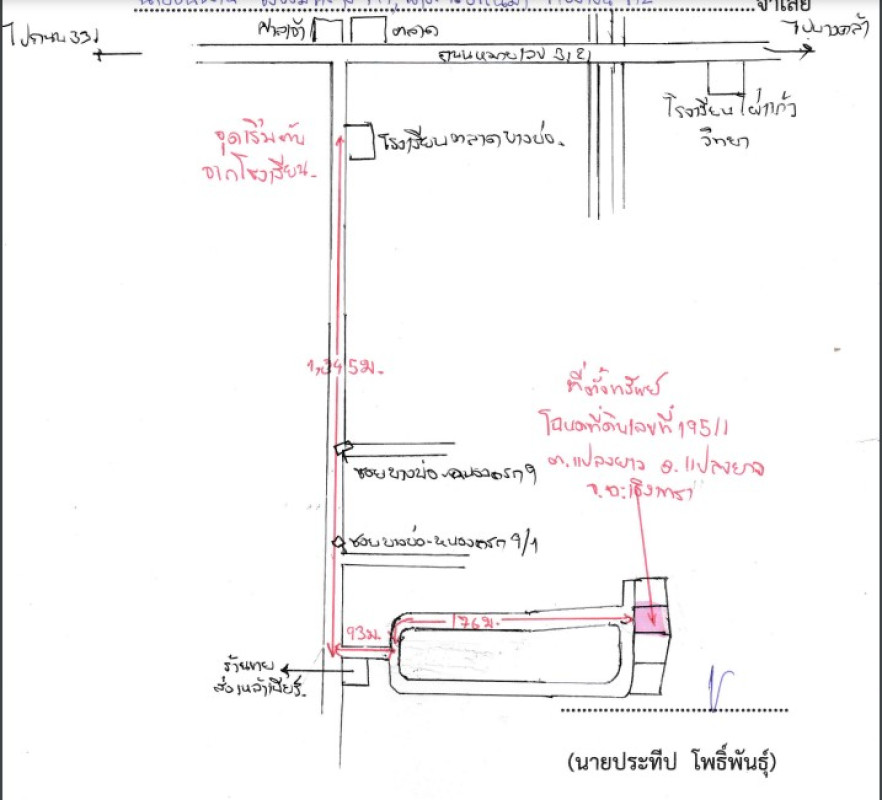 จำเลย
ไปถนน 331
ศาลเจ้า
ตลาด
ถนนหมายเลข
ไปบางคล้า
โรงเรียนไผ่แก้ว
วิทยา
จุดเริ่มต้น
จากโรงเรียน.
โรงเรียนตลาดบางบ่อ.
1,345ม.
ที่ตั้งทรัพย์
โฉนดที่ดินเลขที่ 19511
ต.แปลงยาว อ.แปลงยาว
จ.ฉะเชิงเทรา
ซอยบางบ่อ-หนองตรก 9
ซอยบางบ่อ-หนองตรก 9/1
93ม.
176ม.
ร้านขาย
ส่งเหล้าเบียร์.
(นายประทีป โพธิ์พันธุ์)